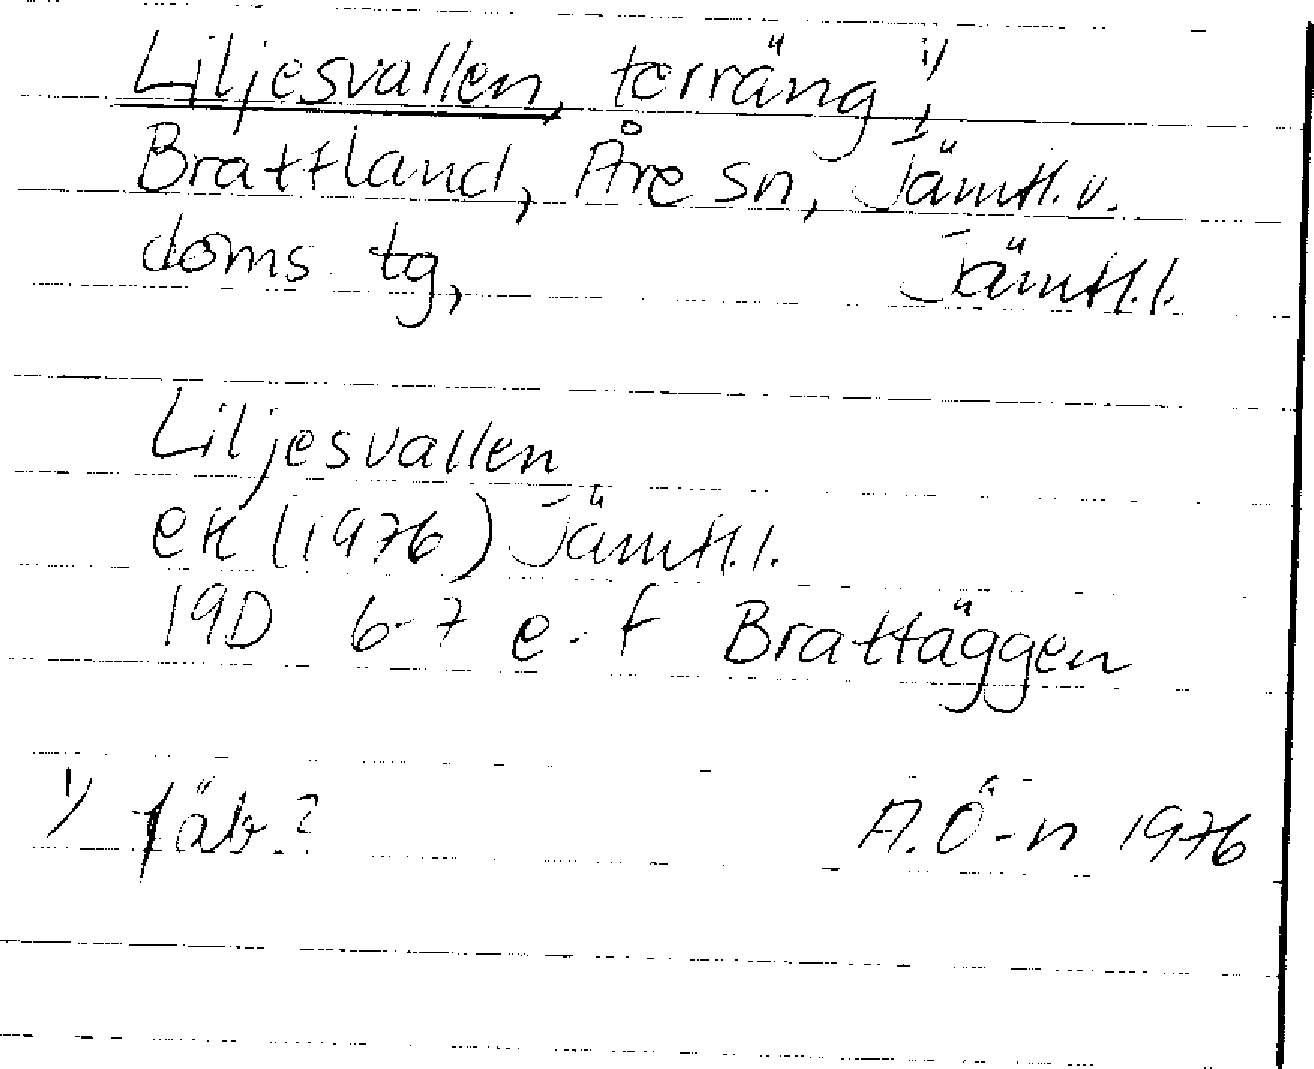 Liljesvallen, terräng ¹⁾,
Brattland, Åre sn, Jämtl. v.
doms tg, Jämtl. l.
Liljesvallen
ek (1976) Jämtl. l.
19D 6-7 e-f Brattäggen
1) fäb.? A. Ö-n 1976